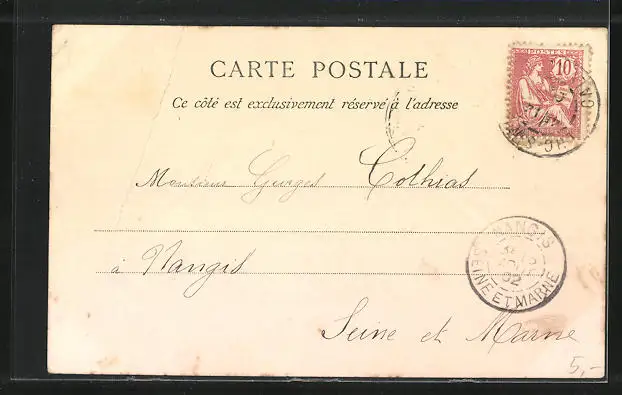 CARTE POSTALE
Ce côté est exclusivement réservé à l'adresse
POSTES
10
Monsieur Georges Cothias
à Nangis
NANGIS
02
SEINE ET MARNE
Seine et Marne
5,-